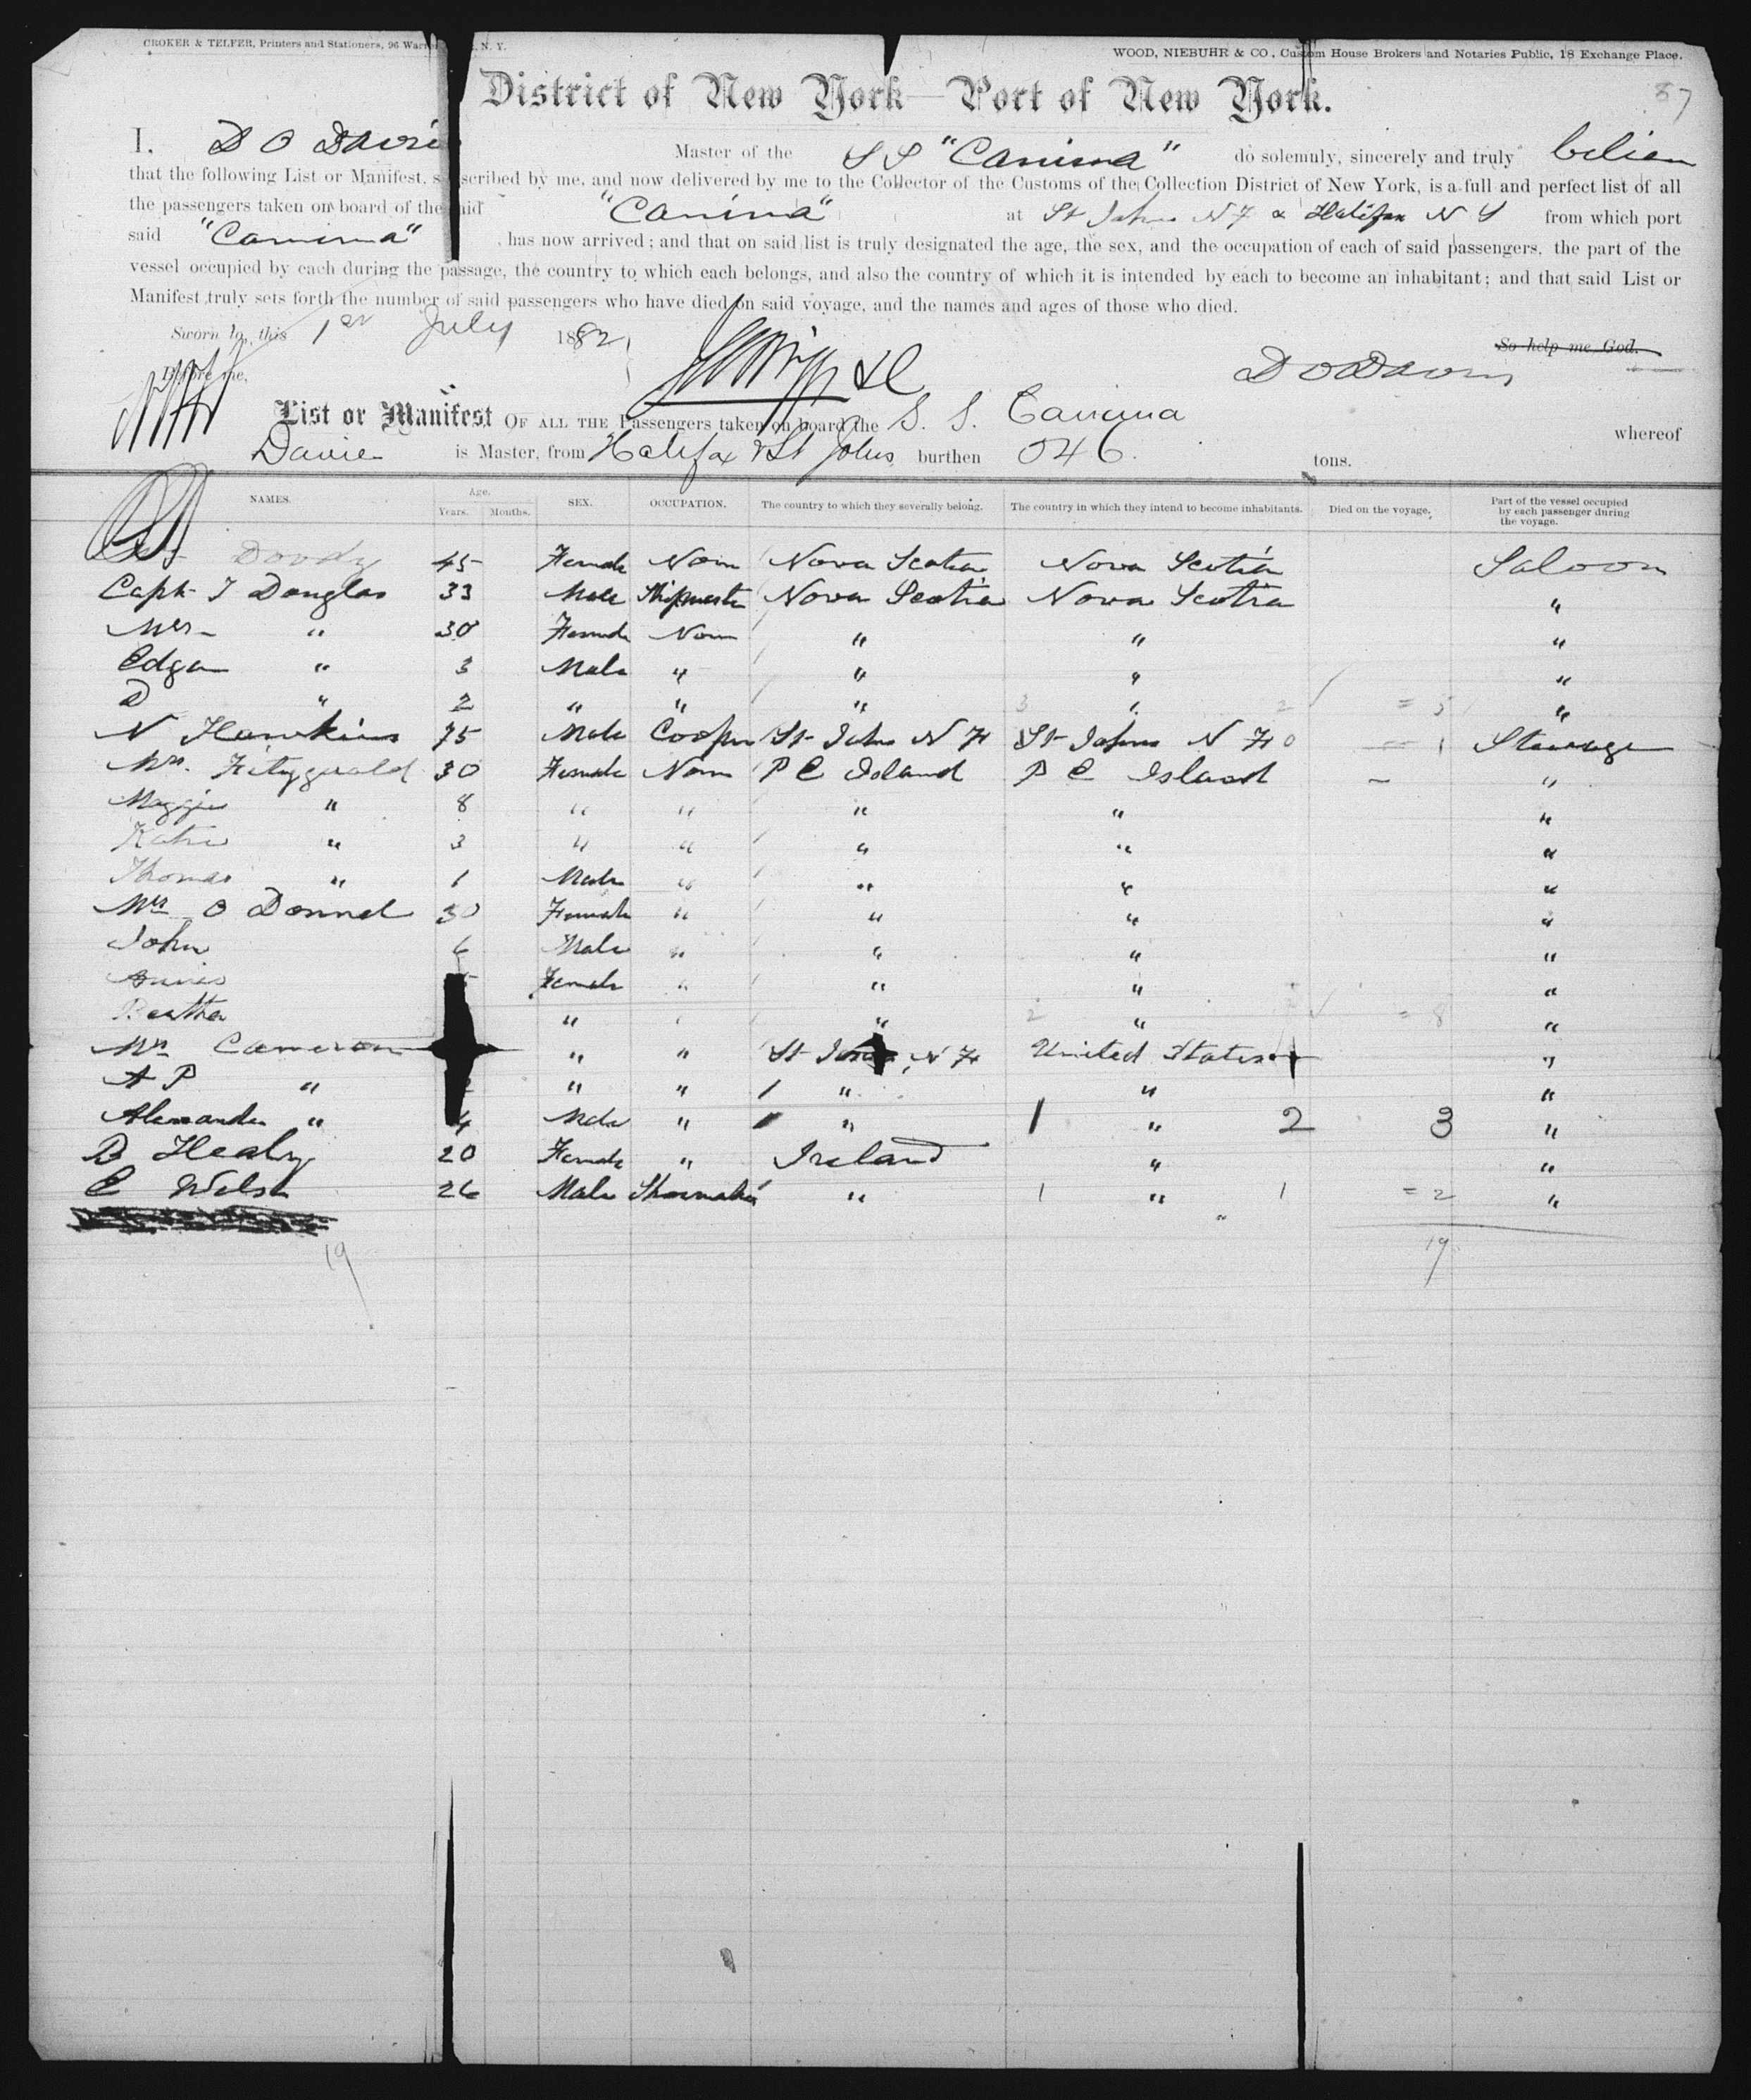 CROKER & TELFER, Printers and Stationers, 96 N. Y.
WOOD, NIEBUHR & CO, Custom House Brokers and Notaries Public, 18 Exchange Place.
87
District of New York Port of New York.
I. D O Davie Master of the S S "Canima" do solemnly, sincerely and truly
that the following List or Manifest, subscribed by me, and now delivered by me to the Collector of the Customs of the Collection District of New York, is a full and perfect list of all
the passengers taken on board of the said "Canima" at St Johns N F & Halifax N S from which port
said "Canima" has now arrived; and that on said list is truly designated the age, the sex, and the occupation of each of said passengers, the part of the
vessel occupied by each during the passage, the country to which each belongs, and also the country of which it is intended by each to become an inhabitant; and that said List or
Manifest truly sets forth the number of said passengers who have died on said voyage, and the names and ages of those who died.
Sworn to, this 1st July 1882,
So help me God.
Before me,
List or Manifest OF ALL THE Passengers taken on board the S. S. Canima whereof
Davie is Master, from Halifax & St Johns burthen 546 tons.
NAMES. Age. Years. Months. SEX. OCCUPATION. The country to which they severally belong. The country in which they intend to become inhabitants. Died on the voyage. Part of the vessel occupied by each passenger during the voyage.
Doody 45 Female Non Nova Scotia Nova Scotia Saloon
Capt J Douglas 33 Male Shipmaster Nova Scotia Nova Scotia "
Mrs " 30 Female Non " " "
Edgar " 3 Male " " " "
D " 2 " " " 3 " 2 = 5 "
N Hawkins 75 Male Cooper St Johns N F St Johns N F 0 = 1 Steerage
Mrs. Fitzgerald 30 Female Non P E Island P E Island "
Maggie " 8 " " " " "
Katie " 3 " " " " "
Thomas " 1 Male " " " "
Mrs O Donnel 30 Female " " " "
John 6 Male " " " "
Annie Female " " " "
Bertha " " " 2 " = 8 "
Mrs Cameron " " St Johns N F United States "
A P " " " " " "
Alexander " 4 Male " " 1 " 2 3 "
B Healy 20 Female " Ireland " "
E Welsh 26 Male Shoemaker " 1 " 1 = 2 "
19 19